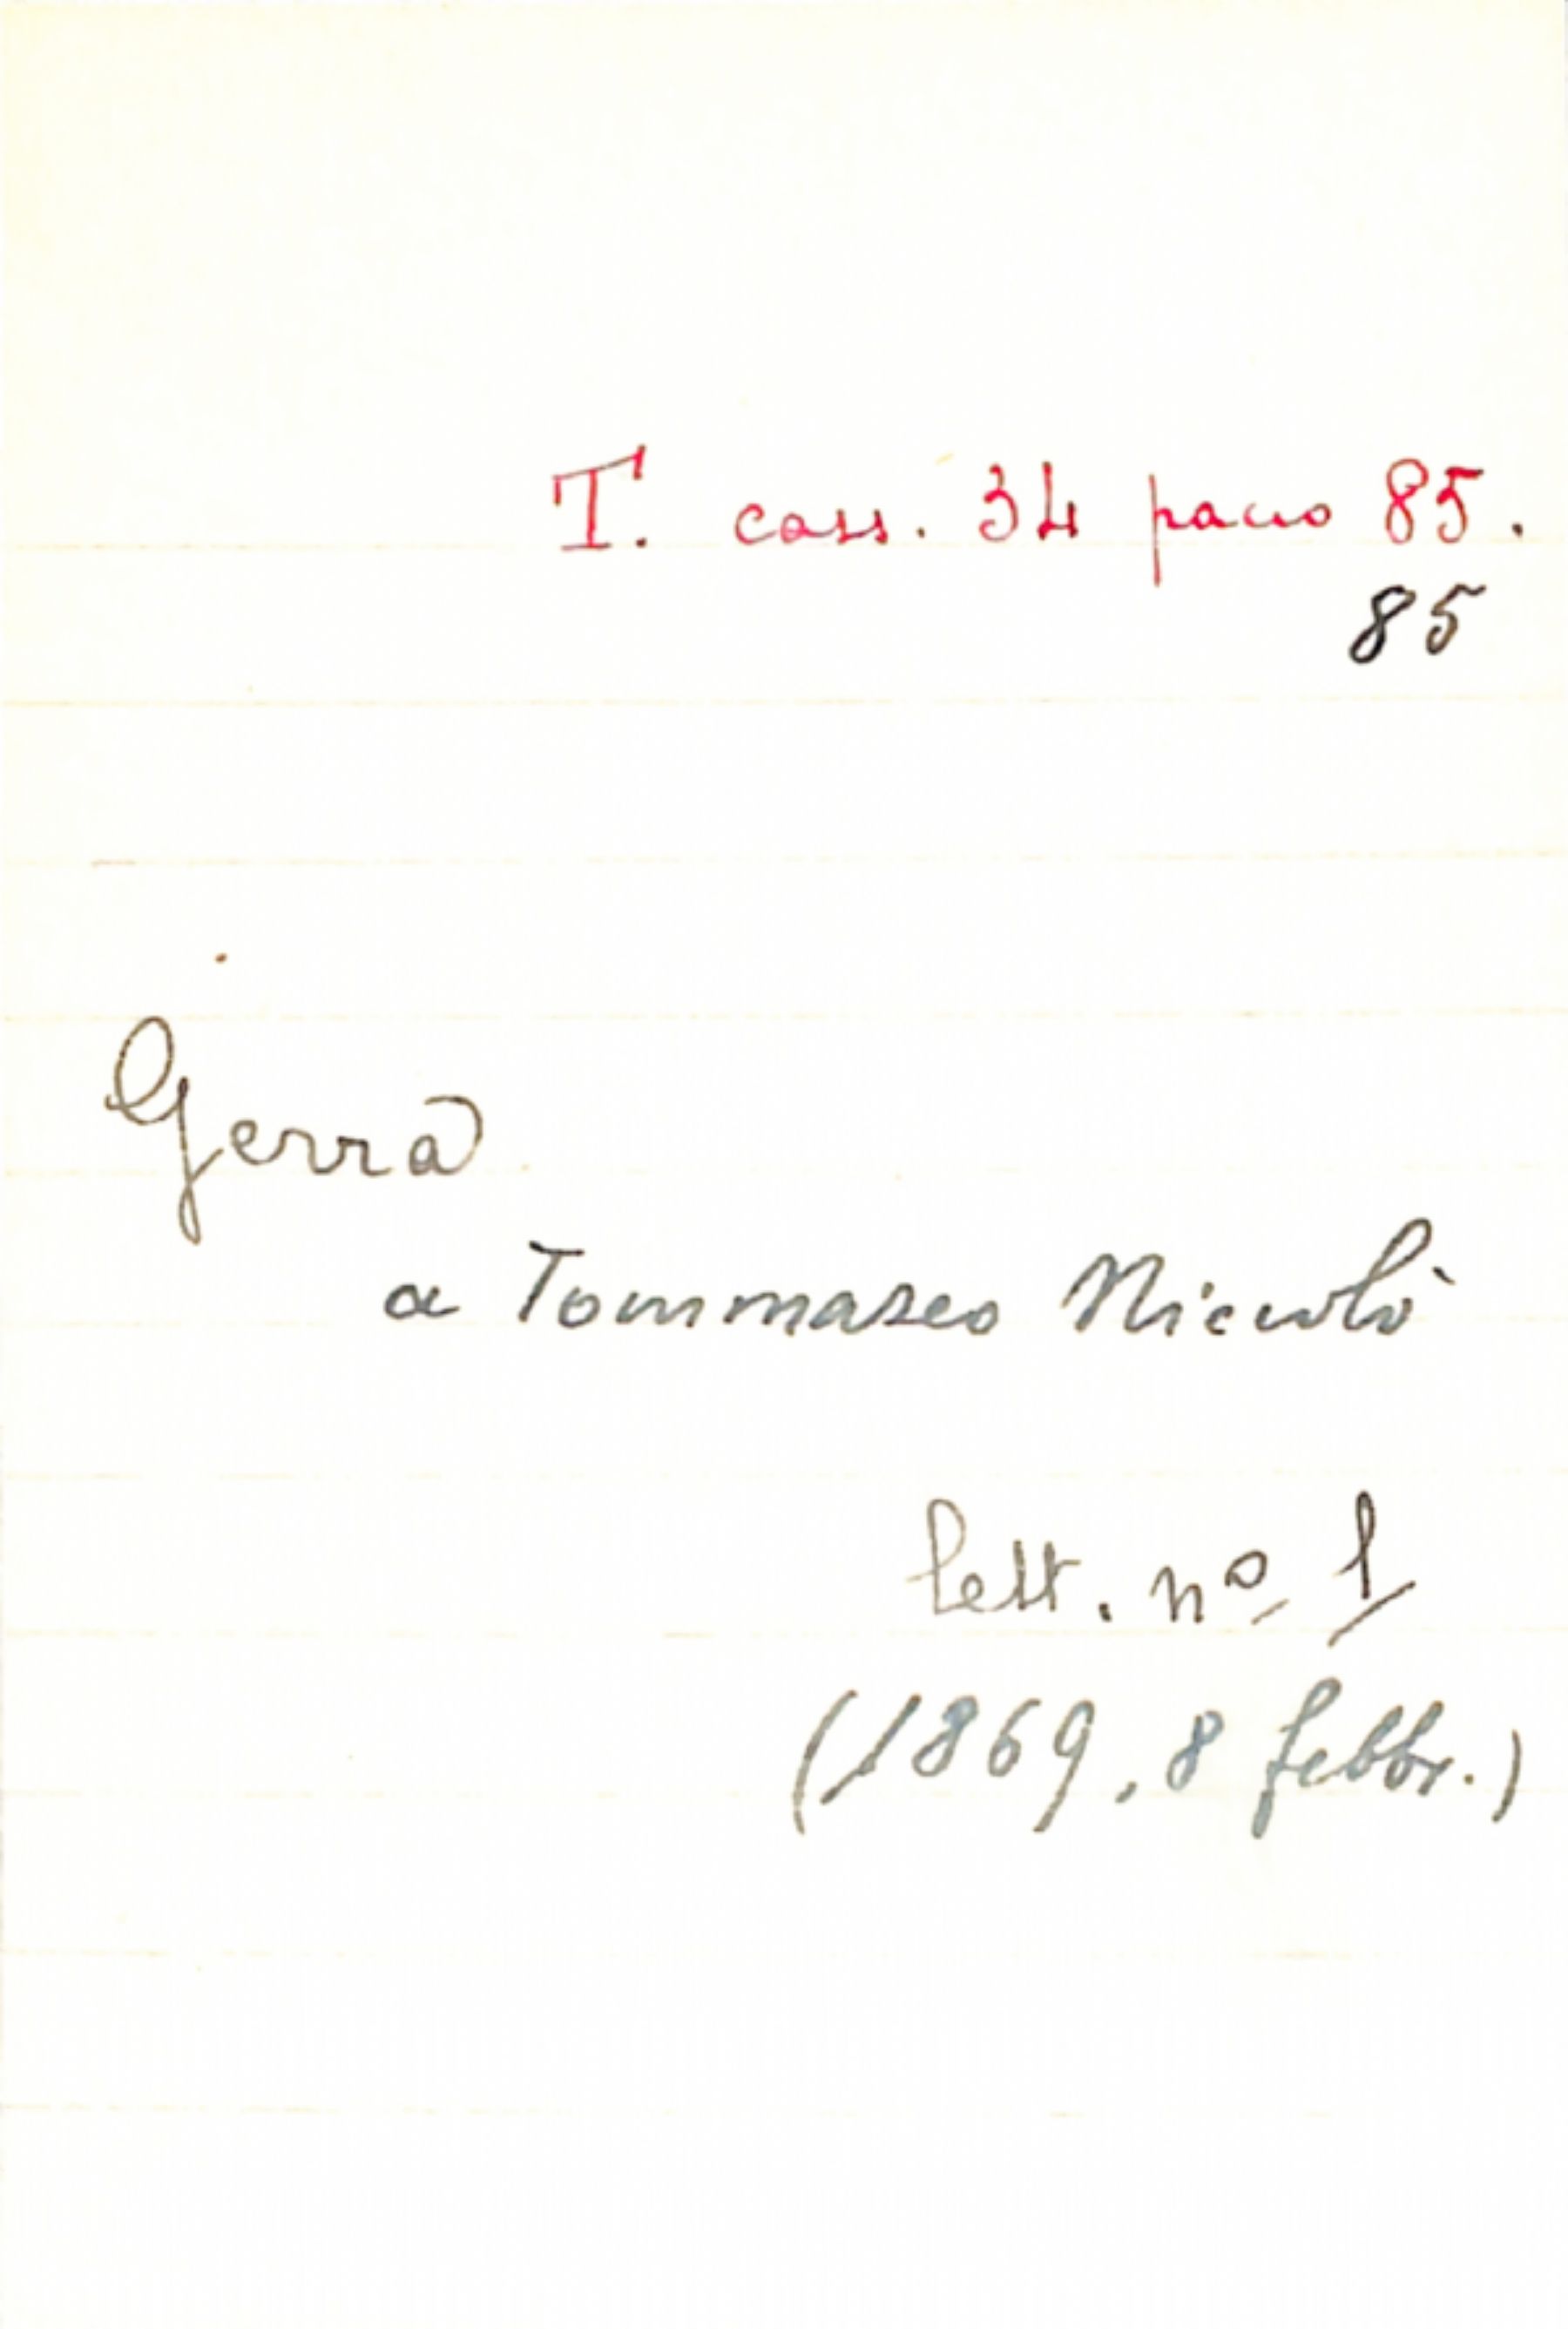 T. cass. 34 pacco 85.
85
Gerra
a Tommaseo Niccolò
lett. nº 1
(1869, 8 febbr.)